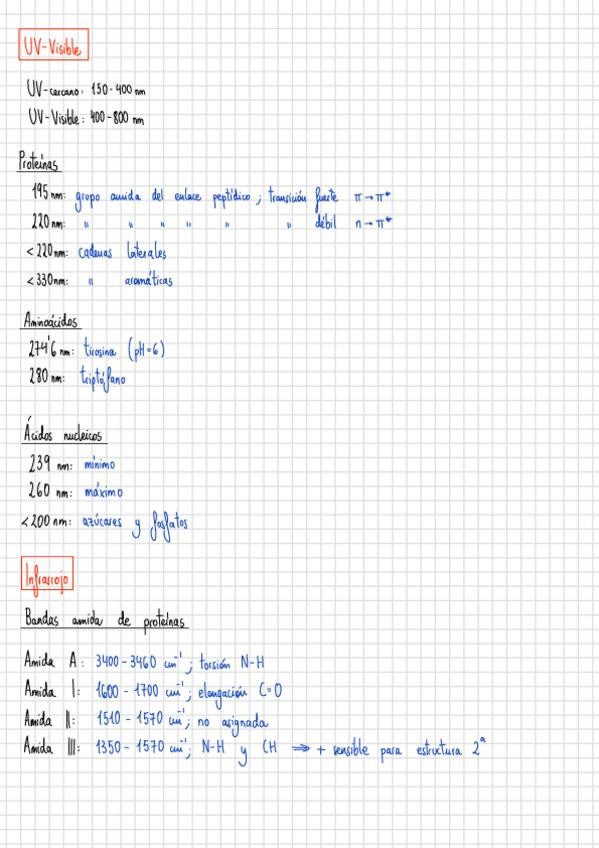 UV-Visible
UV-cercano: 150-400 nm
UV-Visible: 400-800 nm
Proteínas
195 nm: grupo amida del enlace peptídico; transición fuerte π→π*
220 nm: " " " " " " débil n→π*
<220 nm: cadenas laterales
<330 nm: " aromáticas
Aminoácidos
274'6 nm: tirosina (pH=6)
280 nm: triptófano
Ácidos nucleicos
239 nm: mínimo
260 nm: máximo
<200 nm: azúcares y fosfatos
Infrarrojo
Bandas amida de proteínas
Amida A: 3400-3460 cm⁻¹; torsión N-H
Amida I: 1600-1700 cm⁻¹; elongación C=O
Amida II: 1510-1570 cm⁻¹; no asignada
Amida III: 1350-1570 cm⁻¹; N-H y CH ⇒ + sensible para estructura 2ª